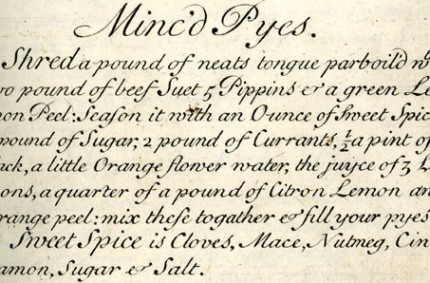 Minc'd Pyes.
Shred a pound of neats tongue parboild wth
wo pound of beef Suet 5 Pippins & a green Le
mon Peel: Season it with an Ounce of Sweet Spic
pound of Sugar; 2 pound of Currants, ½ a pint of
ack, a little Orange flower water, the juyce of 3 L
ons, a quarter of a pound of Citron Lemon an
range peel: mix these togather & fill your pyes
Sweet Spice is Cloves, Mace, Nutmeg, Cin
amon, Sugar & Salt.